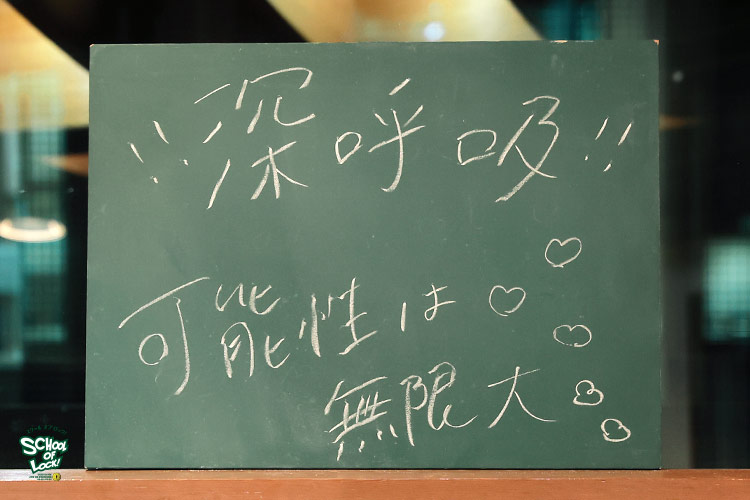 !!深呼吸!!
可能性は
無限大
SCHOOL
OF
LOCK!